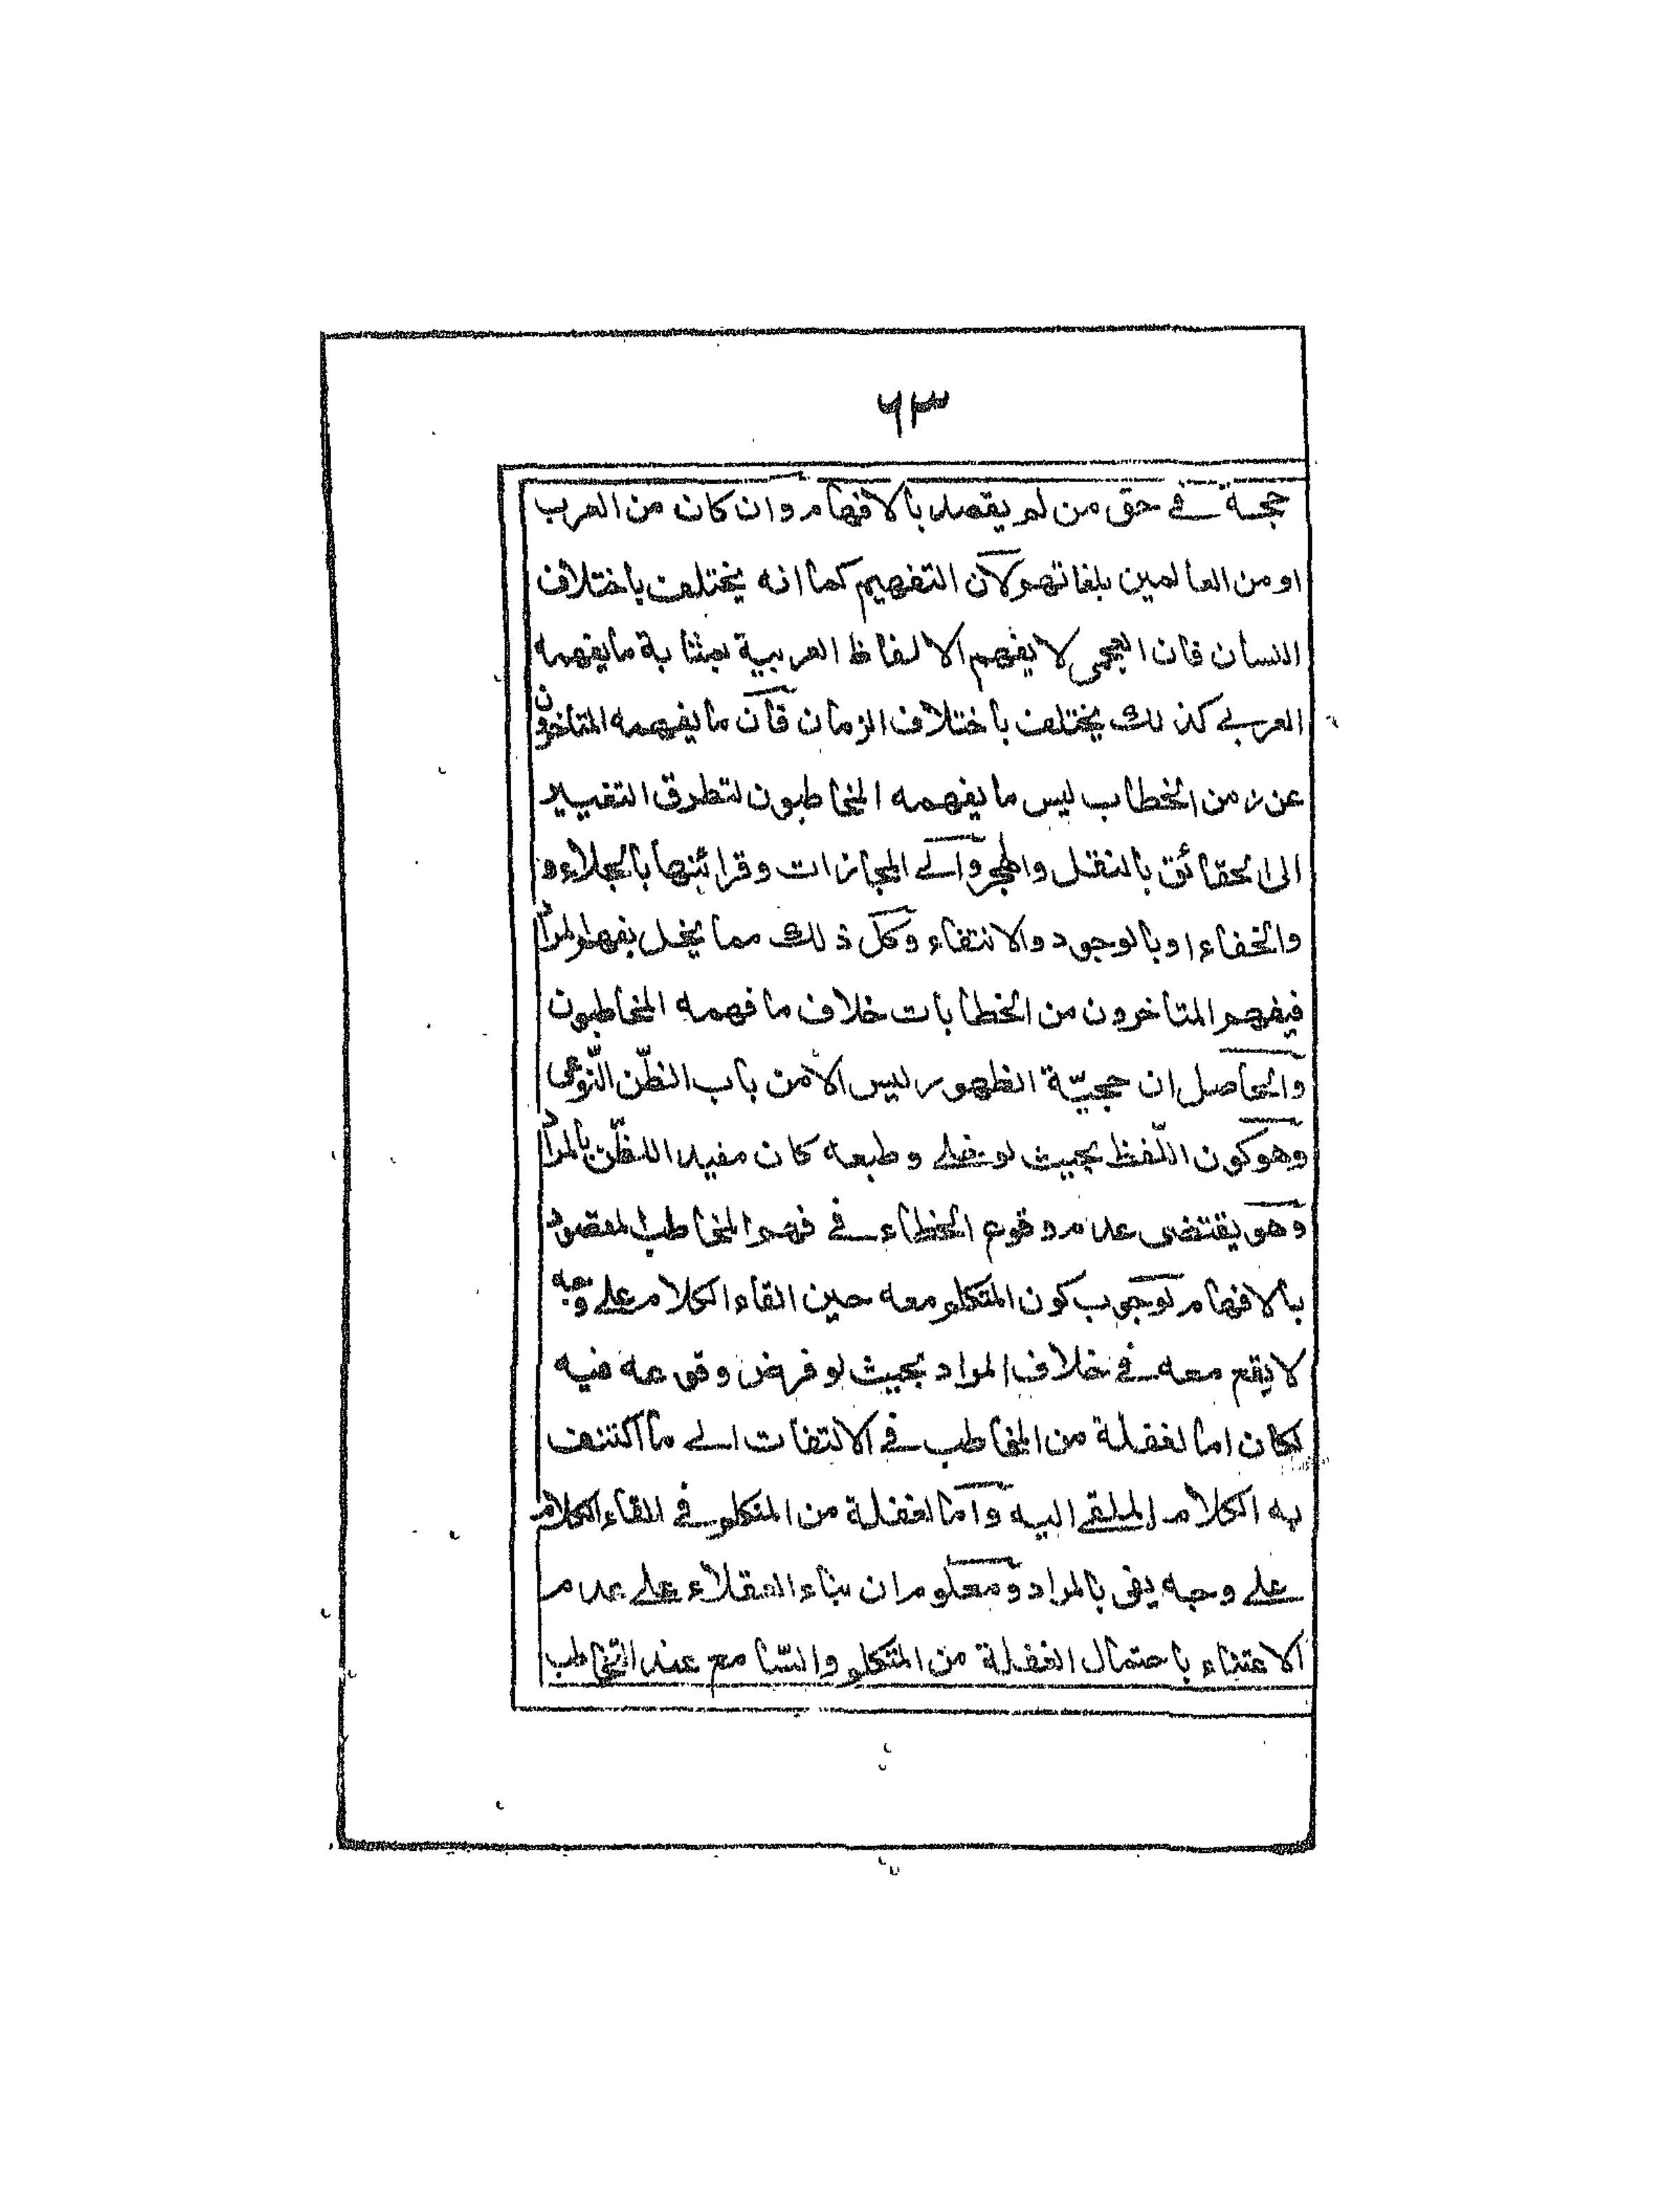 ٦٣
حجة في حق من لم يقصد بالافهام وان كان من العرب
او من العالمين بلغاتهم لان التفهيم كما انه يختلف باختلاف
اللسان فان العجمي لا يفهم الالفاظ العربية بمثابة ما يفهمه
العربي كذلك يختلف باختلاف الزمان فان ما يفهمه المتاخرون
عن زمن الخطاب ليس ما يفهمه المخاطبون لتطرق التغيير
الى الحقائق بالنقل والهجر والى المجازات وقرائنها بالجلاء و
والخفاء او بالوجود والانتفاء وكل ذلك مما يخل بفهم المراد
فيفهم المتاخرون من الخطابات خلاف ما فهمه المخاطبون
والحاصل ان حجيّة الظهور ليس الا من باب الظنّ النّوعي
وهو كون اللّفظ بحيث لو خلي وطبعه كان مفيدا للظنّ بالمراد
وهو يقتضى عدم وقوع الخطاء في فهم المخاطب المقصود
بالافهام لوجوب كون المتكلم معه حين القاء الكلام على وجه
لا يقع معه في خلاف المراد بحيث لو فرض وقوعه فيه
لكان اما لغفلة من المخاطب في الالتفات الى ما اكتنف
به الكلام الملقى اليه واما لغفلة من المتكلم في القاء الكلام
على وجه يفى بالمراد ومعلوم ان بناء العقلاء على عدم
الاعتناء باحتمال الغفلة من المتكلم والسّامع عند التّخاطب